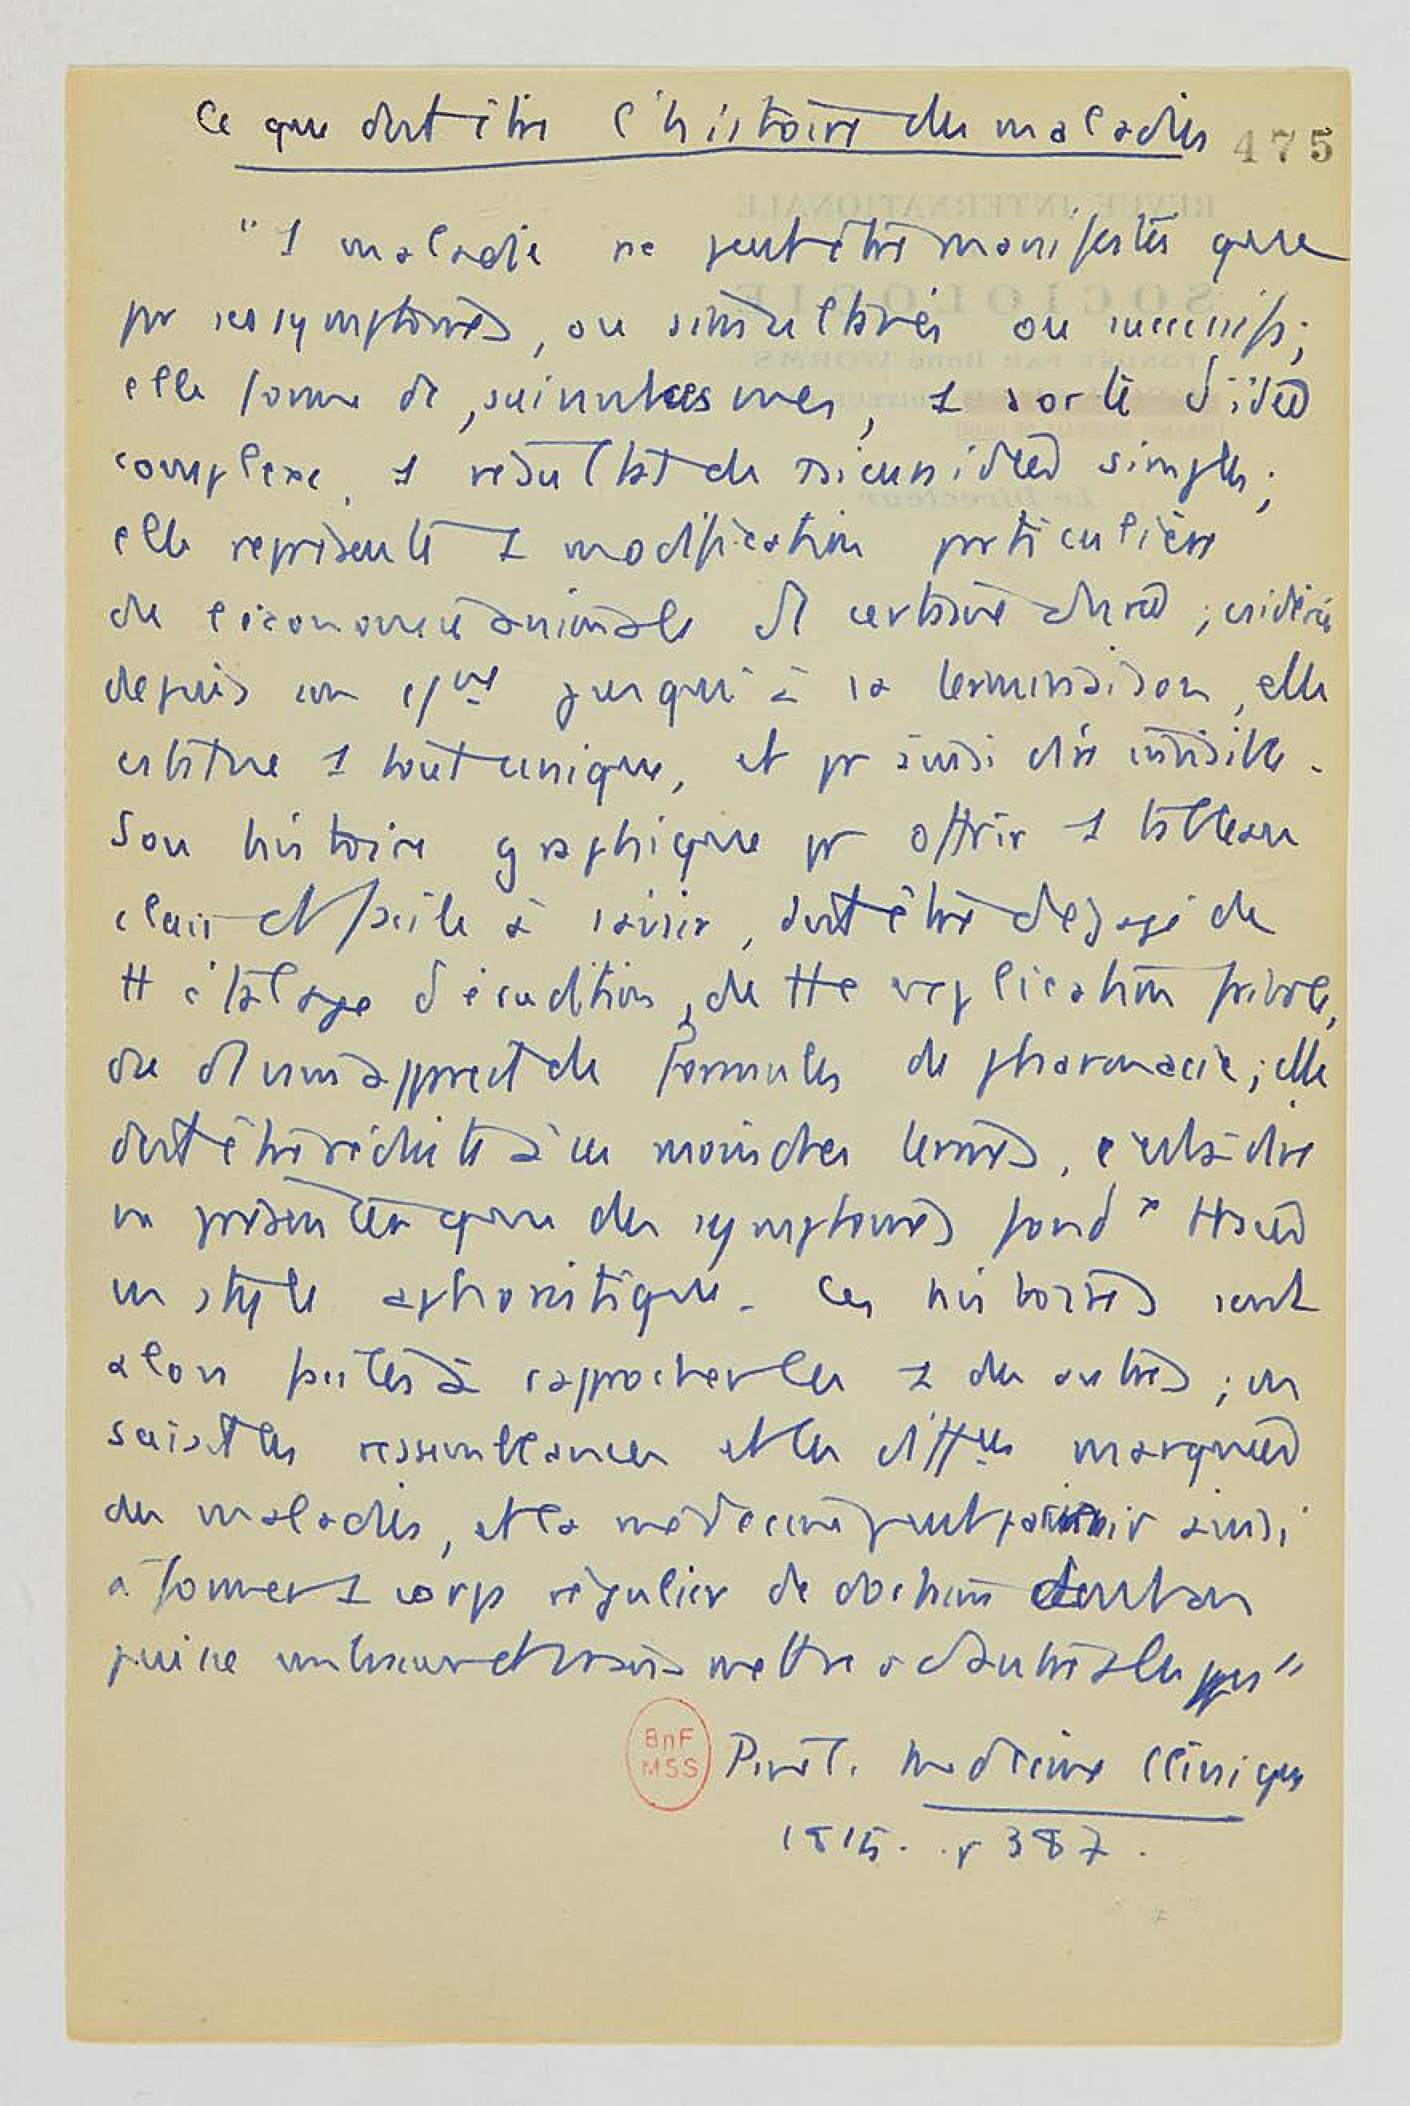 Ce que doit être l'histoire des maladies
475
"1 maladie ne peut être manifestée que
pr ses symptômes, ou simultanés ou successifs;
elle forme de, suivant ses vues, 1 sorte d'idée
complexe, 1 résultat de plusieurs idées simples;
elle représente 1 modification particulière
de l'économie animale d'1 certaine durée ;
depuis son jusqu'à sa terminaison, elle
1 tout unique, et pr ainsi dire indivisible.
Son histoire graphique pr offrir 1 tableau
clair et facile à saisir, doit être dégagé de
tt étalage d'érudition, de tte explication frivole,
ou d'1 vain apprêt de formules de pharmacie ; elle
doit être réduite à ses moindres termes, c'est-à-dire
ne présenter que des symptômes fond x tracés
en style aphoristique. Ces histoires sont
alors faciles à rapprocher les 1 des autres ; on
saisit les ressemblances et les marquées
des maladies, et la médecine peut parvenir ainsi
à former 1 corps régulier de doctrine dont on
puisse
Pinel. Médecine Clinique
1815. p 387.
BnF
MSS
REVUE INTERNATIONALE
SOCIOLOGIE
FONDÉE PAR René WORMS
Le Directeur